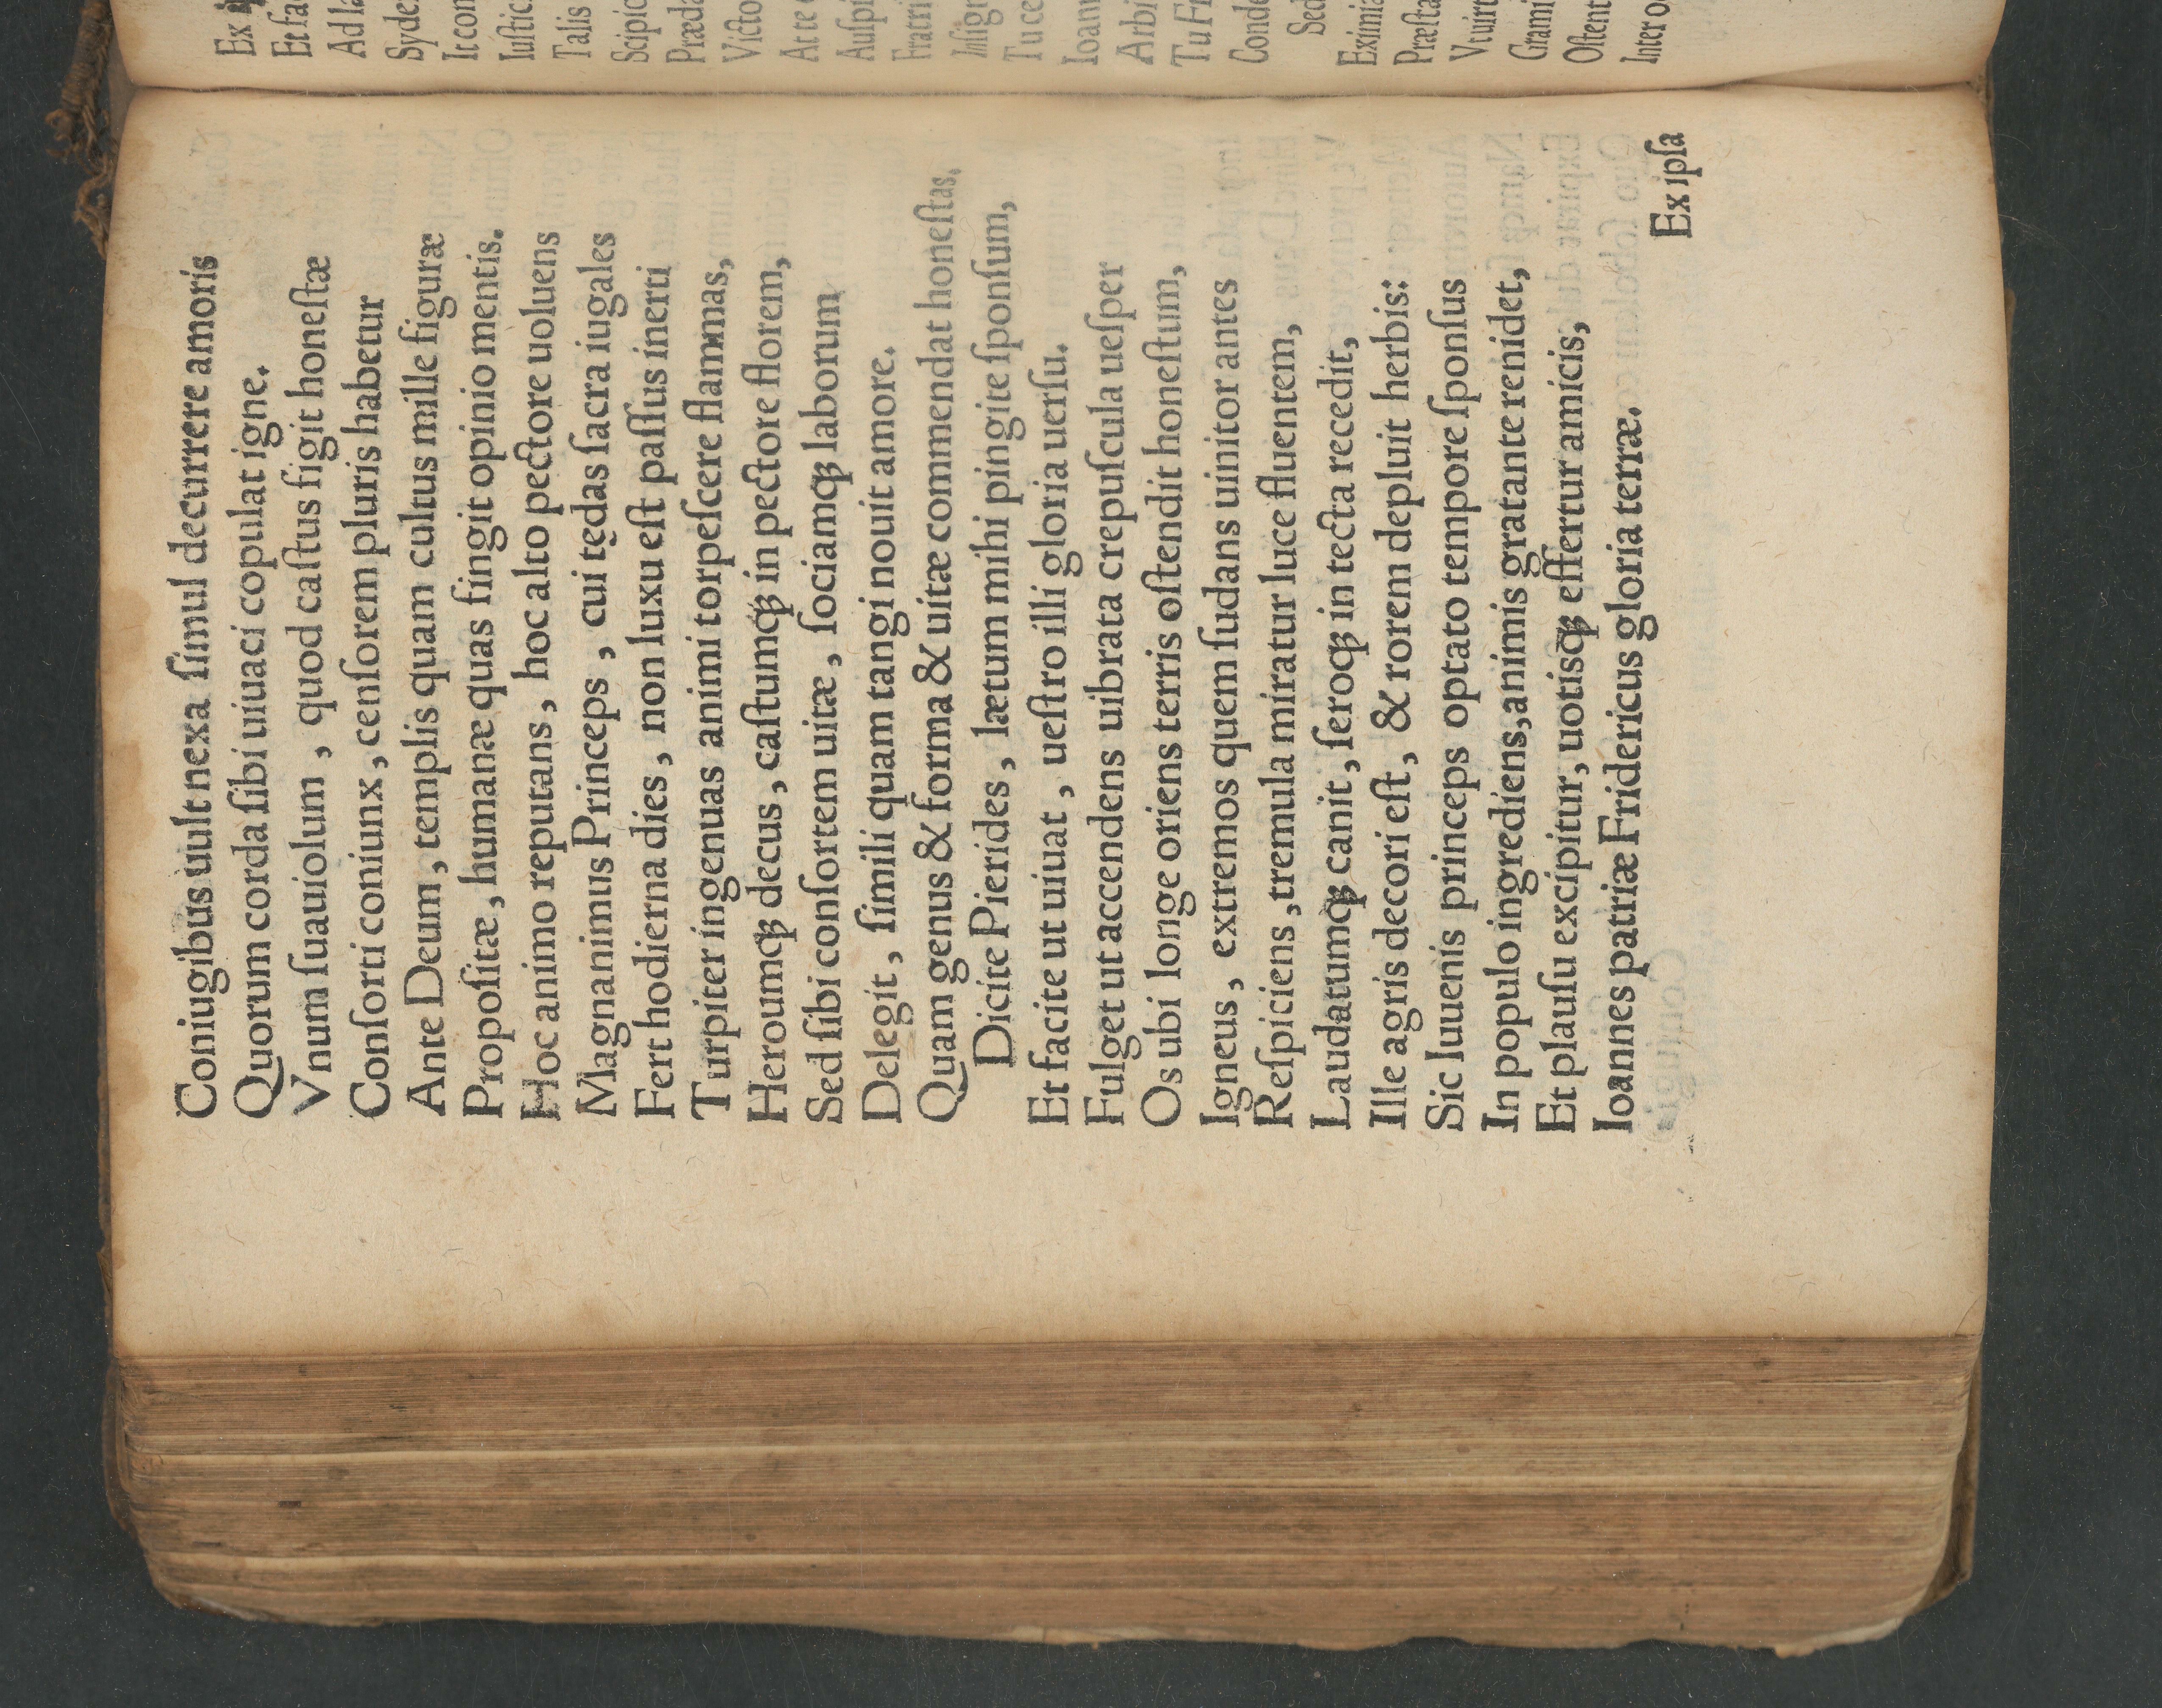 Coniugibus uult nexa ſimul decurrere amoris
Quorum corda ſibi uiuaci copulat igne.
Vnum ſuauiolum, quod caſtus figit honeſtæ
Conſorti coniunx, cenſorem pluris habetur
Ante Deum, templis quam cultus mille figuræ
Propoſitæ, humanæ quas fingit opinio mentis.
Hoc animo reputans, hoc alto pectore uoluens
Magnanimus Princeps, cui tędas ſacra iugales
Fert hodierna dies, non luxu eſt paſſus inerti
Turpiter ingenuas animi torpeſcere flammas,
Heroumqꝫ decus, caſtumqꝫ in pectore florem,
Sed ſibi conſortem uitæ, ſociamqꝫ laborum
Delegit, ſimili quam tangi nouit amore.
Quam genus & forma & uitæ commendat honeſtas.
Dicite Pierides, lætum mihi pingite ſponſum,
Et facite ut uiuat, ueſtro illi gloria uerſu.
Fulget ut accendens uibrata crepuſcula ueſper
Os ubi longe oriens terris oſtendit honeſtum,
Igneus, extremos quem ſudans uinitor antes
Reſpiciens, tremula miratur luce fluentem,
Laudatumqꝫ canit, ſeroqꝫ in tecta recedit,
Ille agris decori eſt, & rorem depluit herbis:
Sic Iuuenis princeps optato tempore ſponſus
In populo ingrediens, animis gratante renidet,
Et plauſu excipitur, uotisqꝫ effertur amicis,
Ioannes patriæ Fridericus gloria terræ.
Ex ipſa
Ex i
Et fa
Ad la
Syde
It con
Iuſtic
Talis
Scipic
Præda
Victo
At te
Auſpi
Fratri
Inſign
Tu ce
Ioann
Arbi
Tu Fr
Conde
Sed
Eximia
Præſta
Vt uirt
Grami
Oſtent
Inter o